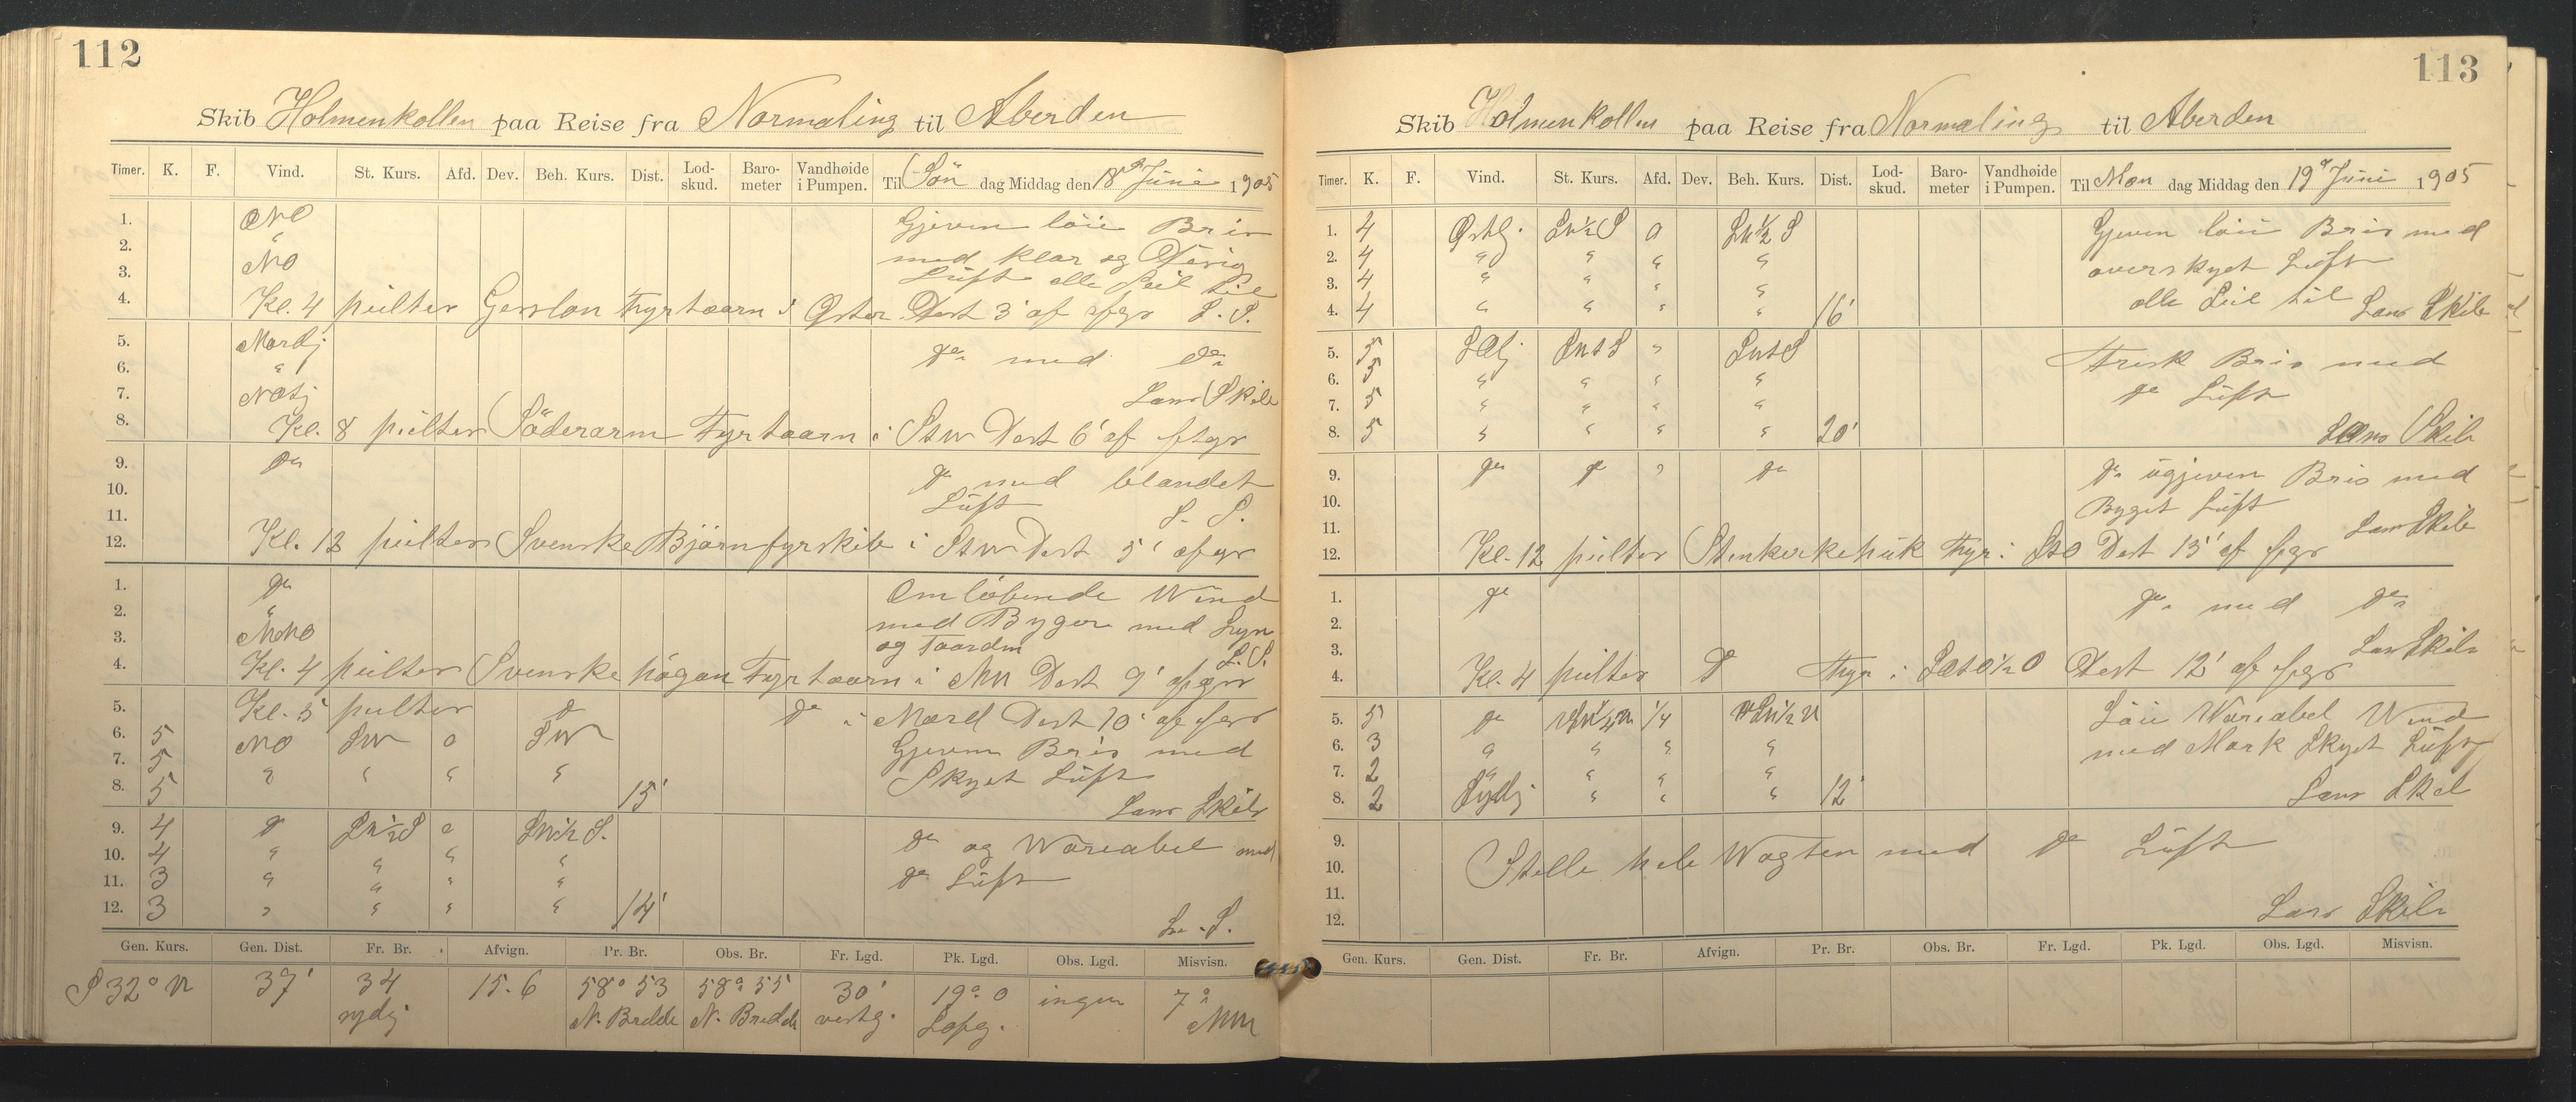 112
Skib Holmenkollen paa Reise fra Normaling til Aberden
Timer. K. F. Vind. St. Kurs. Afd. Dev. Beh. Kurs. Dist. Lod-skud. Baro-meter Vandhøide i Pumpen. Til Sön dag Middag den 18de Juni 1905
1. NO Gjeven löii Bris
2. " med klar og
3. NO Lüft alle Seil til
4. Kl. 4 peilter Fyrtaarn i Öster Dist 3' af S. S.
5. Nordj do med do
6. "
7. Lans Skib
8. Kl. 8 peilter Söderarm Fyrtaarn i Dist 6' af
9. do do med blandet
10. Lüft
11. S. S.
12. Kl. 12 peilter Svenske Björn fyrskib i Dist 5' af
1. do Omlöbende Wind
2. " med Byger med Lyn
3. NNO og Taardn
4. Kl. 4 peilter Svenske högan Fyrtaarn i NW Dist 9' L. S.
5. Kl. 5 peilter do do i Nord Dist 10' af
6. 5 NO SW 0 SW Gjeven Bris med
7. 5 " " " " Skyet Lüft
8. 5 15' Lans Skib
9. 4 do SW½S 0 SW½S. do og Wariabel med
10. 4 " " " " do Lüft
11. 3 " " " "
12. 3 " " " " 14' L. S.
Gen. Kurs. Gen. Dist. Fr. Br. Afvign. Pr. Br. Obs. Br. Fr. Lgd. Pk. Lgd. Obs. Lgd. Misvisn.
S 32° W 37' 34 15.6 58° 53 58° 55 30' 19° 0 ingen 7°
sydlj N. Bredde N. Bredde vestlg. NW
113
Skib Holmenkollen paa Reise fra Normaling til Aberden
Timer. K. F. Vind. St. Kurs. Afd. Dev. Beh. Kurs. Dist. Lod-skud. Baro-meter Vandhøide i Pumpen. Til Man dag Middag den 19de Juni 1905
1. 4 Östlj. SW½S 0 SW½S Gjeven löii Bris med
2. 4 " " " " overskyet Lüft
3. 4 " " " " alle Seil til
4. 4 " " " " 16' Lans Skib
5. 5 " Frisk Bris med
6. 5 " " " " do Lüft
7. 5 " " " "
8. 5 " " " " 20' Lans Skib
9. do do " do do ügjeven Bris med
10. Byget Lüft
11. Lans Skib
12. Kl. 12 peilter Fyr i Dist 15' af
1. do do med do
2.
3. Lans Skib
4. Kl. 4 peilter do Fyr i Dist 12' af
5. 5 do ¼ Löii Wariabel Wind
6. 3 " " " " med Mørk Skyet Lüft
7. 2 " " " "
8. 2 Sydlj " " " 12' Lans Skib
9. Stille hele Wagten med do Lüft
10.
11.
12. Lans Skib
Gen. Kurs. Gen. Dist. Fr. Br. Afvign. Pr. Br. Obs. Br. Fr. Lgd. Pk. Lgd. Obs. Lgd. Misvisn.